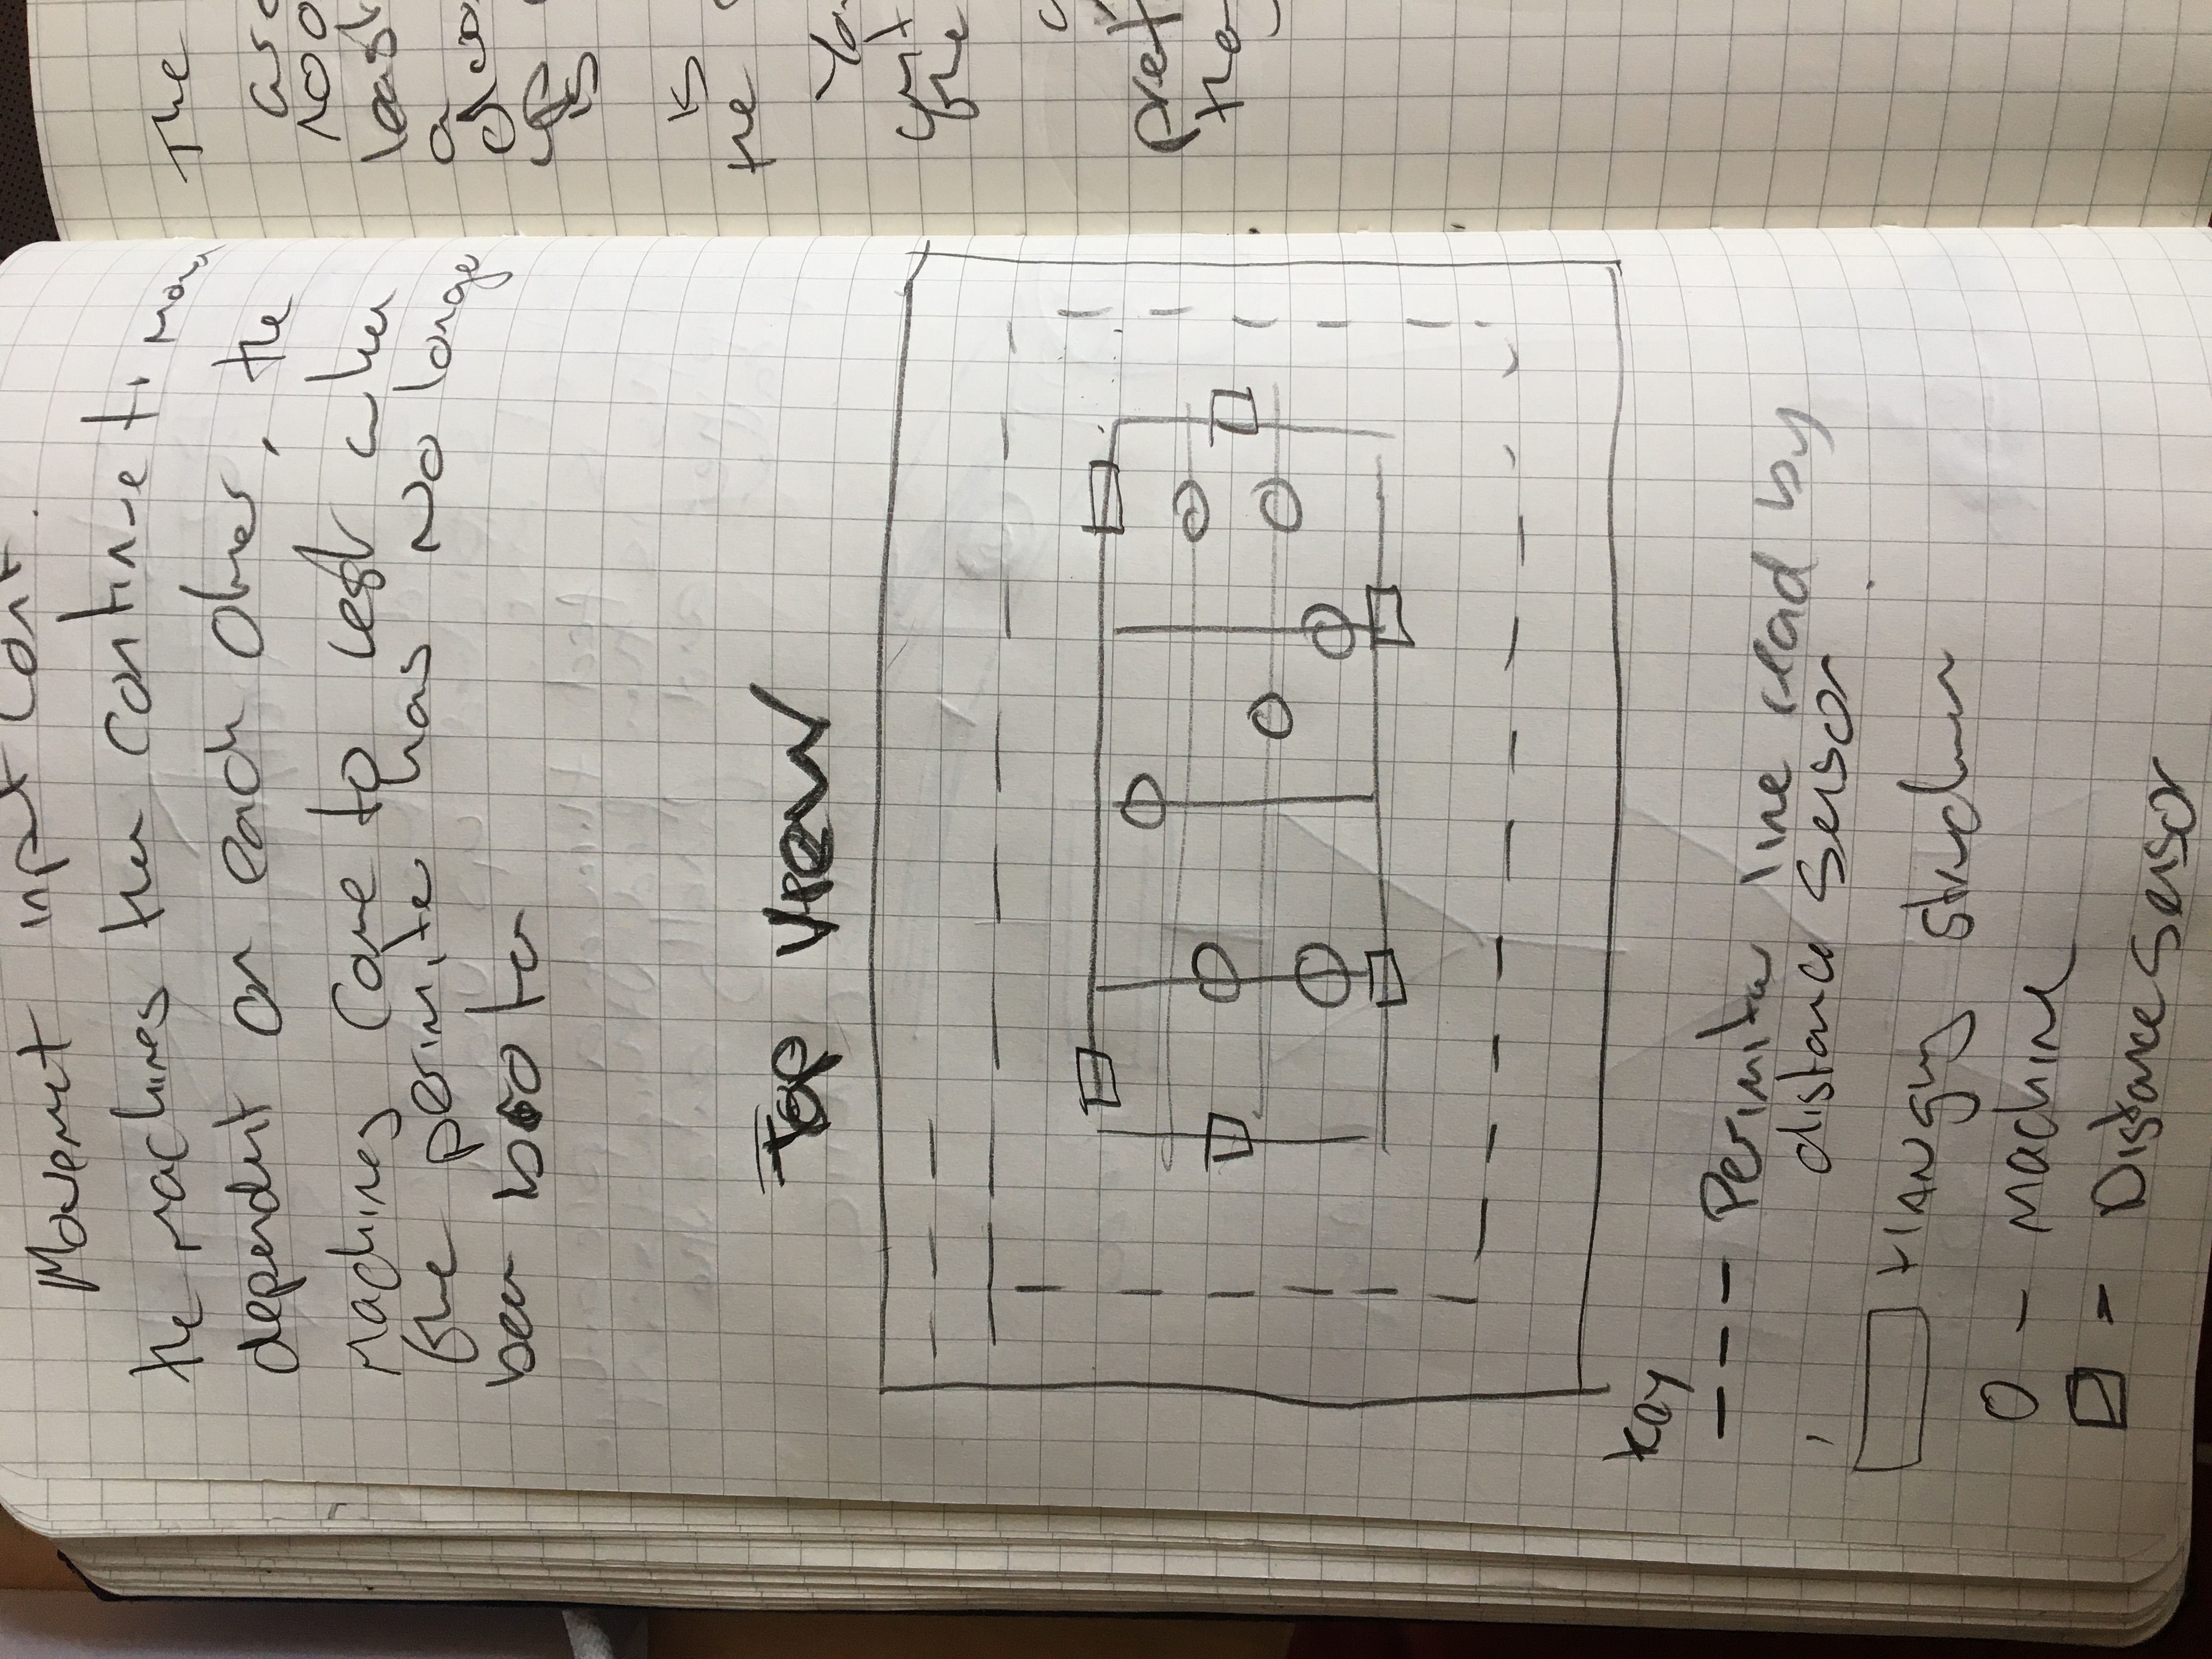 Movemet input Cont.
the machines then continue to move
dependent on each other, the
machines come to rest when
the perimiter has No longer
been broken
Top View
key
--- Perimiter line read by
distance Sensor
HANging structure
O - Machine
- Distance Sensor
The
least
a
is
is
the
the